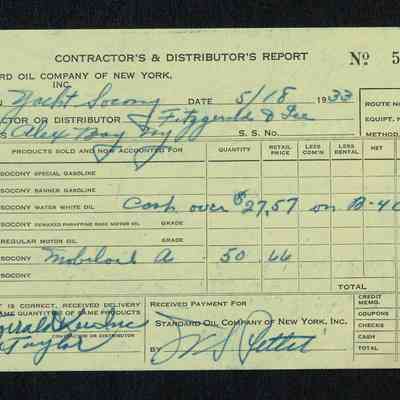 CONTRACTOR'S & DISTRIBUTOR'S REPORT Nº 5
RD OIL COMPANY OF NEW YORK, INC.
Yacht Socony DATE 5/18 1933 ROUTE NO
CTOR OR DISTRIBUTOR Fitzgerald & Lee EQUIPT. N
Alex Bay Ny S. S. NO. METHOD,
PRODUCTS SOLD AND NOT ACCOUNTED FOR QUANTITY RETAIL PRICE LESS COM'N LESS RENTAL NET
SOCONY SPECIAL GASOLINE
SOCONY BANNER GASOLINE
SOCONY WATER WHITE OIL Cash over $27,57 on B-40
SOCONY DEWAXED PARAFFINE BASE MOTOR OIL GRADE
REGULAR MOTOR OIL GRADE
SOCONY Mobiloil A - 50 .66
SOCONY
TOTAL
IT IS CORRECT, RECEIVED DELIVERY
AME QUANTITIES OF SAME PRODUCTS
Taylor
RECEIVED PAYMENT FOR
STANDARD OIL COMPANY OF NEW YORK, INC.
BY
CREDIT MEMO.
COUPONS
CHECKS
CASH
TOTAL